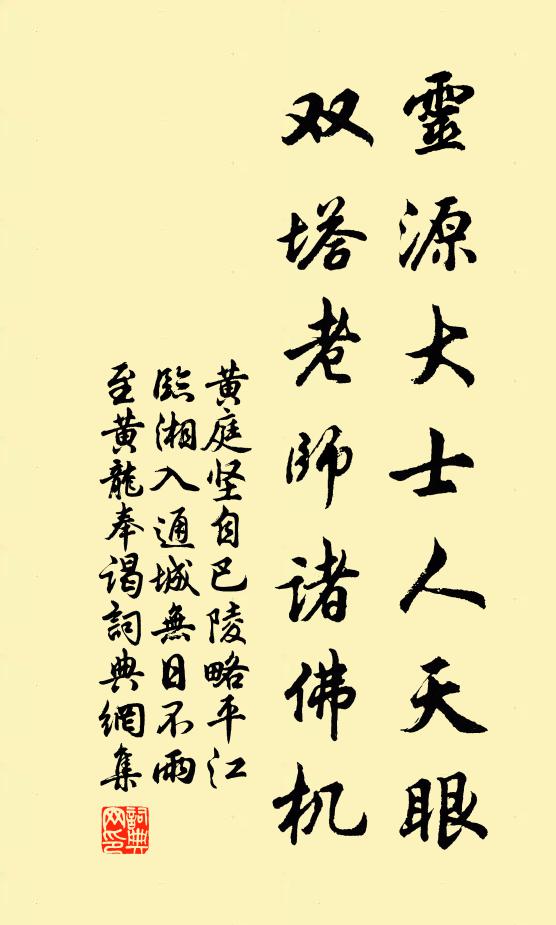 靈源大士人天眼
双塔老師諸佛机
黄庭坚自巴陵略平江
臨湘入通城無日不雨
至黄龍奉谒詞典網集
詞典
网印